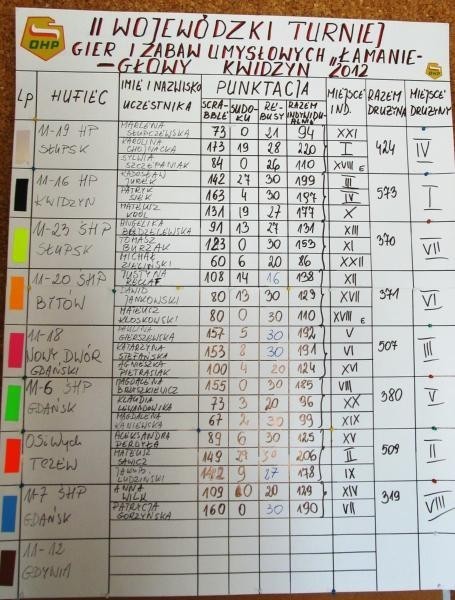 OHP
II WOJEWÓDZKI TURNIEJ
GIER I ZABAW UMYSŁOWYCH „ŁAMANIE-
-GŁOWY KWIDZYN 2012
Lp HUFIEC IMIĘ I NAZWISKO UCZESTNIKA PUNKTACJA MIEJSCE IND. RAZEM DRUŻYNA MIEJSCE DRUŻYNY
SCRABBLE SUDOKU REBUSY RAZEM INDYWIDUALNIE
11-19 HP SŁUPSK 424 IV
MARLENA SŁUPCZEWSKA 73 0 21 94 XXI
KAROLINA CHOJNACKA 173 19 28 220 I
SYLWIA SZCZEPANIAK 84 0 26 110 XVIII E
11-16 HP KWIDZYN 573 I
RADOSŁAW JUREK 142 27 30 199 III
PATRYK SIEK 163 4 30 197 IV
MATEUSZ KRÓL 131 19 27 177 X
11-23 ŚHP SŁUPSK 370 VII
ANGELIKA 91 13 27 131 XIII
TOMASZ BURZAK 123 0 30 153 XI
MICHAŁ ZIELIŃSKI 60 6 20 86 XXII
11-20 ŚHP BYTÓW 371 VI
JUSTYNA 108 14 16 138 XII
DAWID JANKOWSKI 80 13 30 129 XVII
MATEUSZ KŁOSKOWSKI 80 0 30 110 XVIII E
11-18 NOWY DWÓR GDAŃSKI 507 III
PAULINA GIERSZEWSKA 157 5 30 192 V
KATARZYNA STEFAŃSKA 153 8 30 191 VI
AGNIESZKA PIETRASIAK 100 4 20 124 XVI
11-6 ŚHP GDAŃSK 380 V
MAGDALENA 155 0 30 185 VIII
KLAUDIA LEWANDOWSKA 73 3 20 96 XX
MAGDALENA KANIEWSKA 67 2 30 99 XIX
OSiW TCZEW 509 II
ALEKSANDRA PERDYŁA 89 6 30 125 XV
MATEUSZ SAWICZ 149 27 30 206 II
JAKUB LUDZIŃSKI 142 9 27 178 IX
11-7 ŚHP GDAŃSK 319 VIII
ANNA WILK 109 0 20 129 XIV
PATRYCJA GORZYŃSKA 160 0 30 190 VII
11-12 GDYNIA